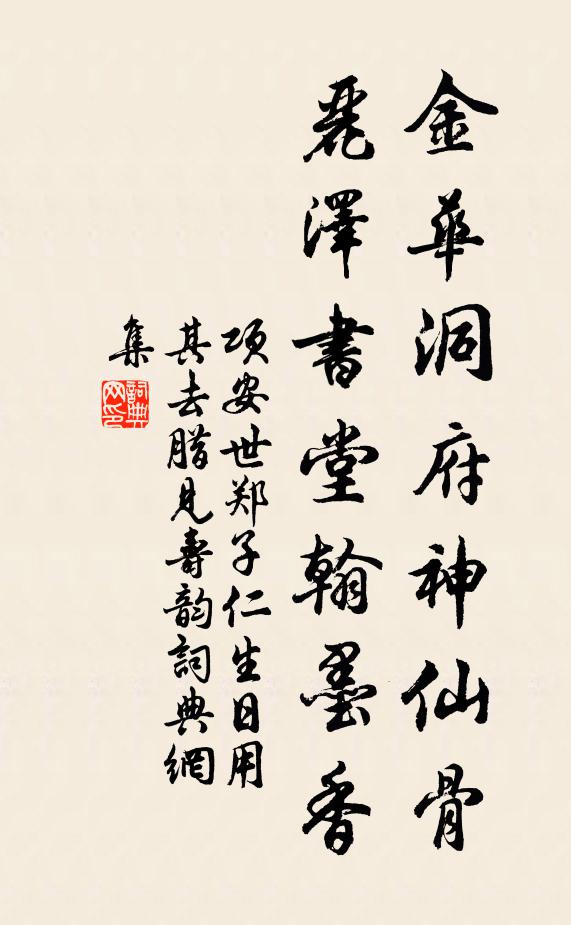 金華洞府神仙骨
麗澤書堂翰墨香
项安世郑子仁生日用
其去腊見壽韵詞典網
集
詞典
网印